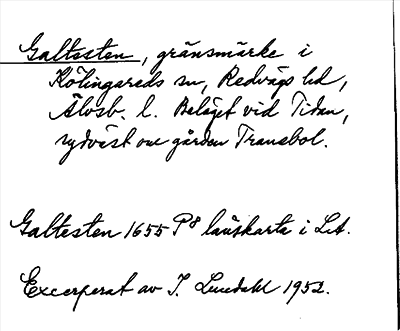 Galtesten, gränsmärke i
Kölingareds sn, Redvägs hd,
Älvsb. l. Beläget vid Tidan,
sydväst om gården Tranebol.
Galtesten 1655 P8 lantkarta i LA.
Excerperat av I. Lundahl 1952.